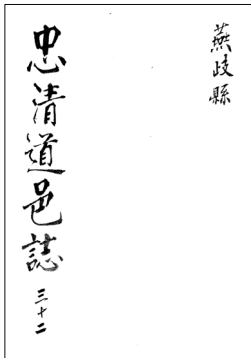 燕岐縣
忠清道邑誌 三十二